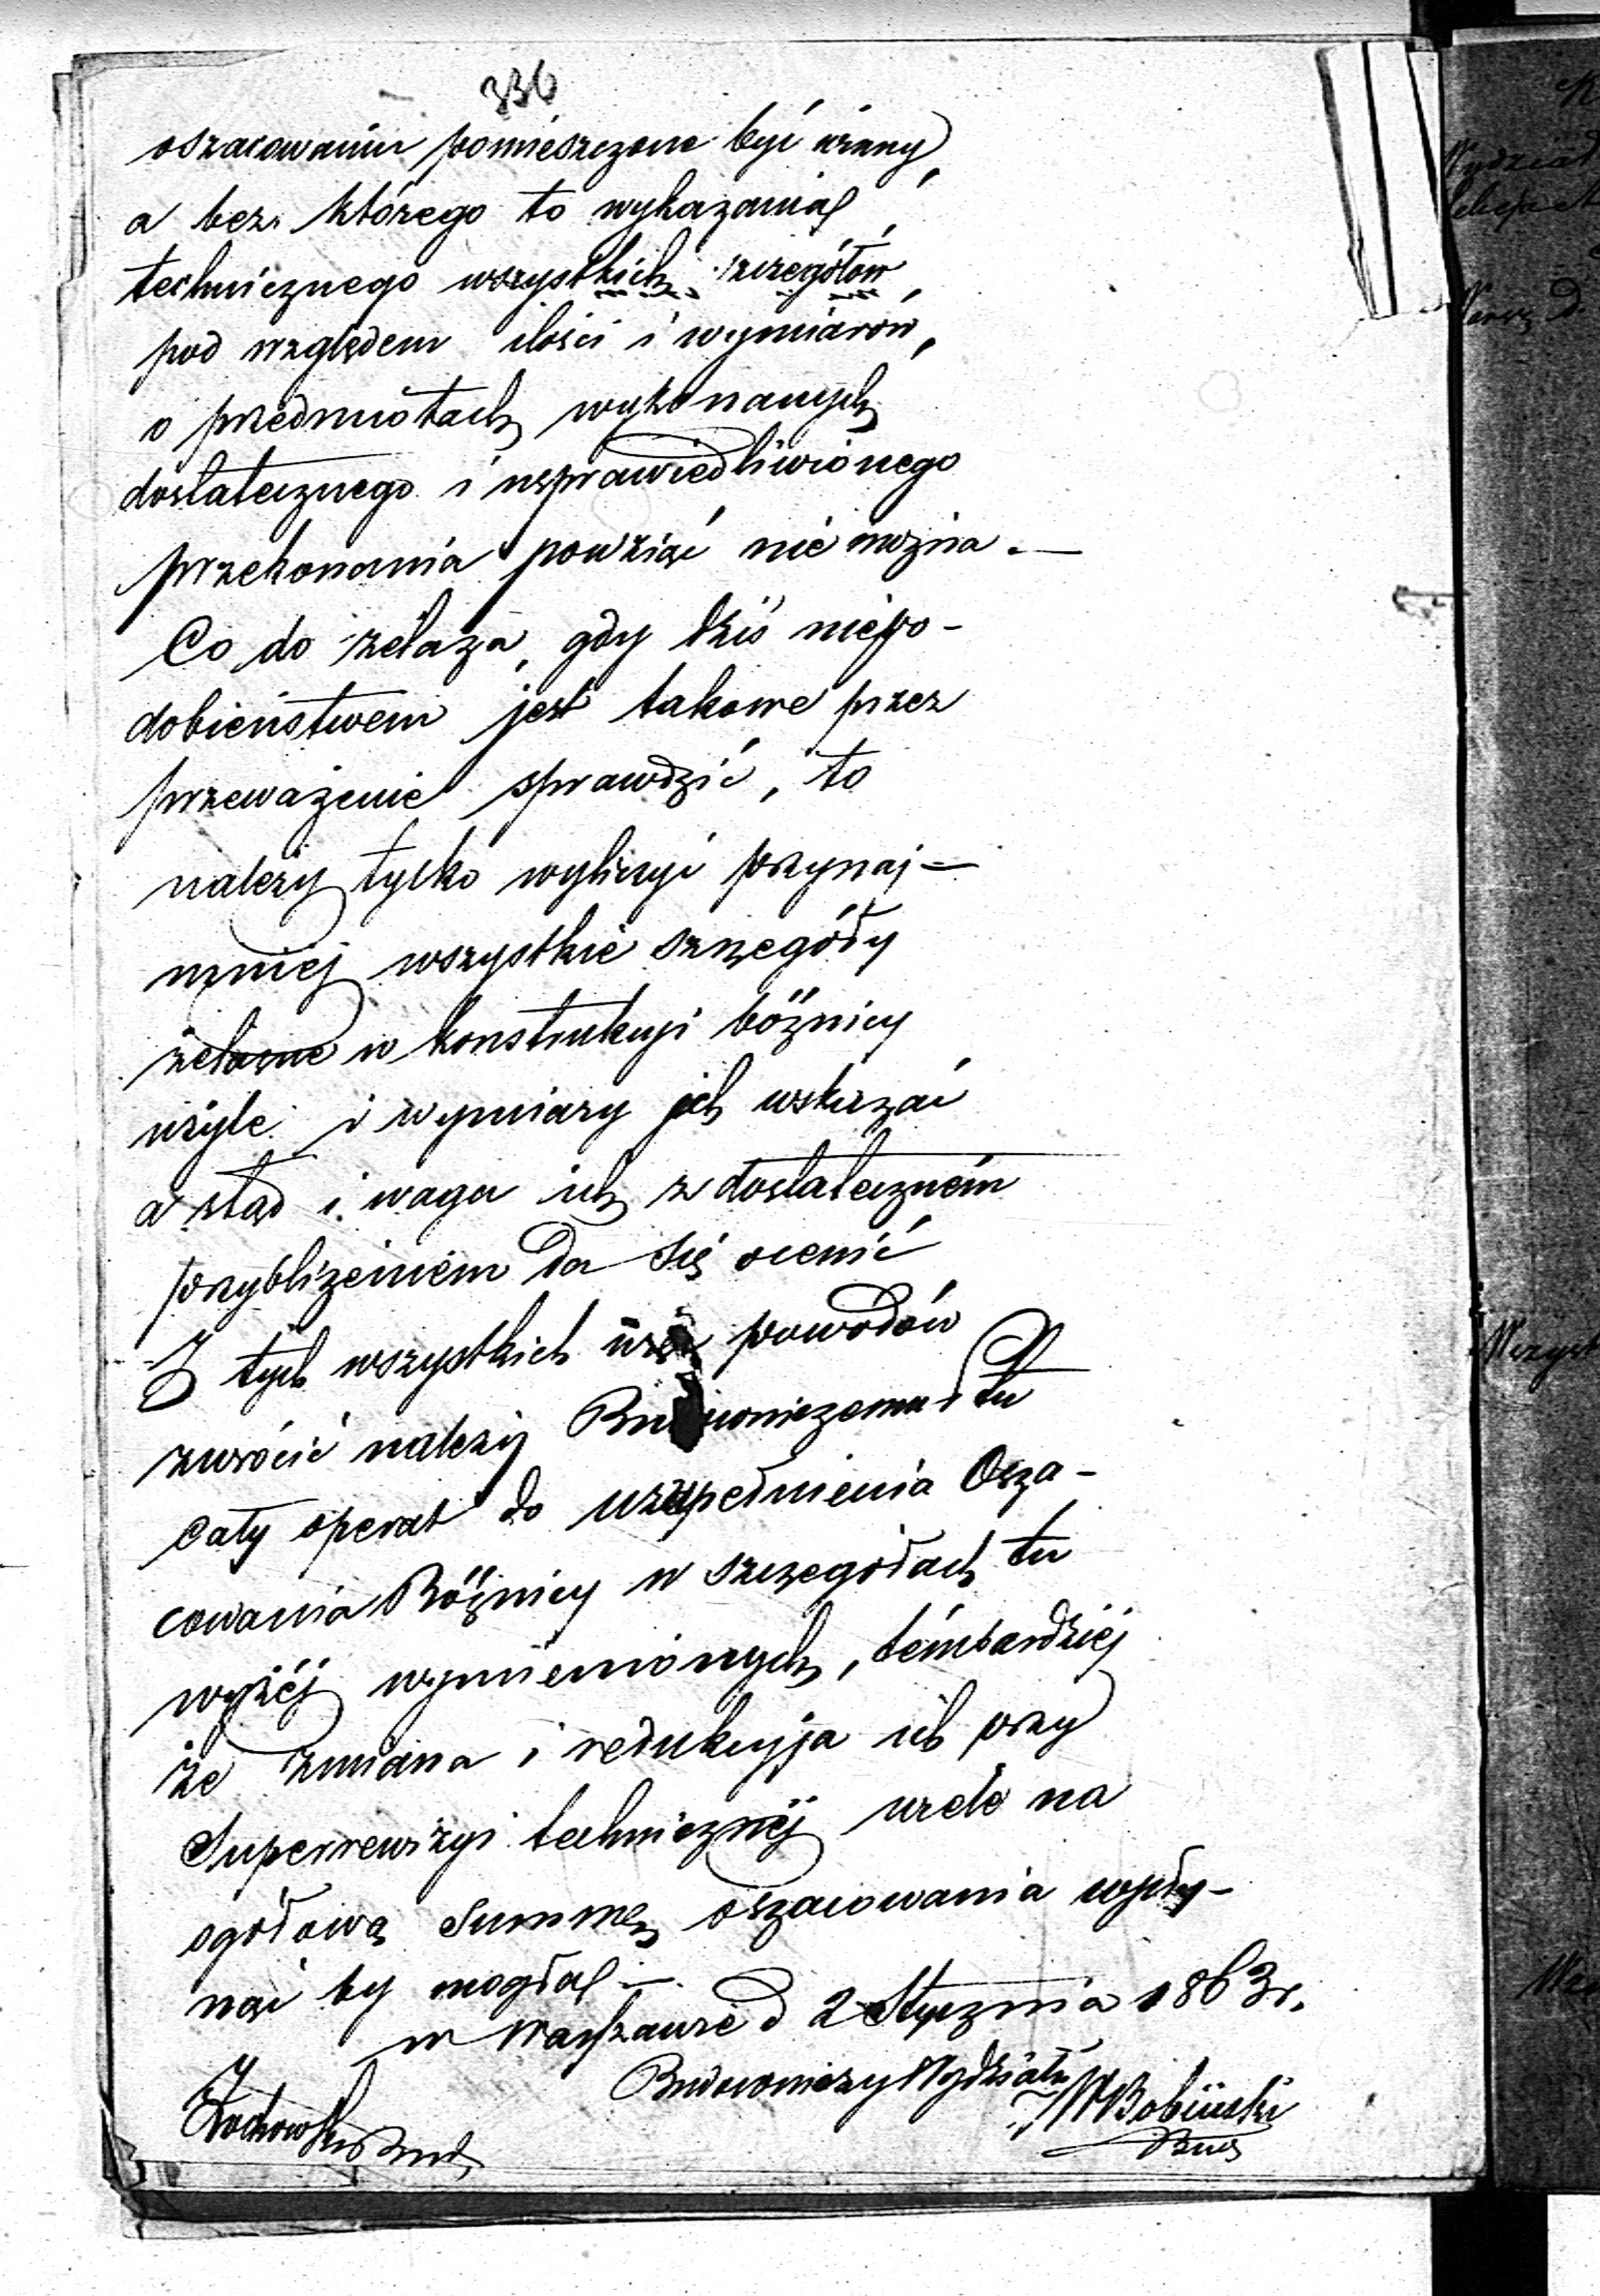 336
oszacowaniu pomieszczone być winny,
a bez którego to wykazania
technicznego wszystkich szczegółów,
pod względem ilości i wymiarów,
o przedmiotach wykonanych
dostatecznego i usprawiedliwionego
przekonania powziąć nie można. —
Co do żelaza, gdy dziś niepo-
dobieństwem jest takowe przez
przeważenie sprawdzić, to
należy tylko wyliczyć przynaj-
mniej wszystkie szczegóły
żelazne w konstrukcyi bóżnicy
użyte i wymiary ich wskazać
a stąd i waga ich z dostateczném
przybliżeniem da się ocenić
Z tych wszystkich powodów
zwrócić należy Budowniczemu tu
cały operat do uzupełnienia Osza-
cowania Bóżnicy w szczegółach tu
wyżéj wymienionych, témbardziéj
że zmiana i redukcyja ich przy
Superrewizyi technicznéj wiele na
ogółową Summę oszacowania wpły-
nąć by mogła —
w Warszawie d 2 Stycznia 1863 r.
Budowniczy Wydziału
Żochowski Bud
Bobiński
Bud